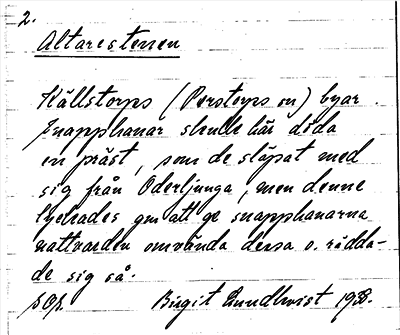 2.
Altarestenen
Källstorps (Perstorps sn) byar.
Snapphanar skulle här döda
en präst, som de släpat med
sig från Oderljunga, men denne
lyckades gm att ge snapphanarna
nattvarden omvända dessa o. rädda-
de sig så.
Birgit Lundkvist 1938.